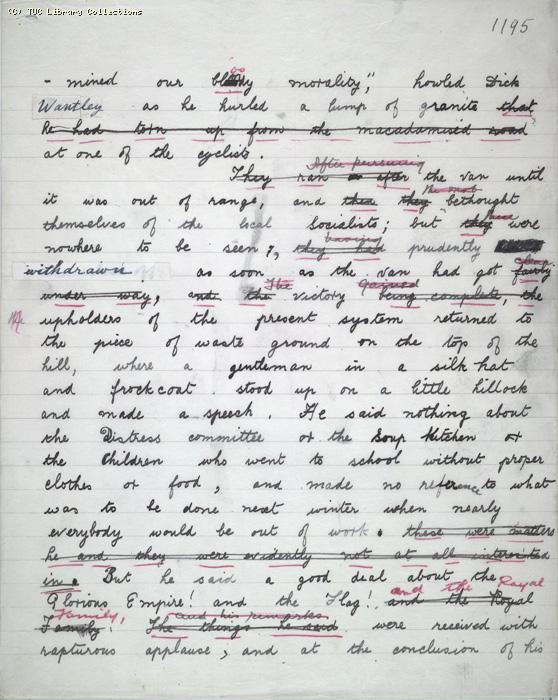 (C) TUC Library Collections
1195
- mined our bloody morality," howled Dick
Wantley as he hurled a lump of granite that
he had torn up from the macadamised road
at one of the cyclists.
After pursuing
They ran on after the van until
it was out of range, and then they bethought
themselves of the local Socialists; but they were
nowhere to be seen; they had prudently
having
withdrawn as soon as the van had got fairly
clear
The Gained
under way, and the victory being complete, the
upholders of the present system returned to
the piece of waste ground on the top of the
hill, where a gentleman in a silk hat
and frockcoat stood up on a little hillock
and made a speech. He said nothing about
the Distress committee or the Soup Kitchen or
the Children who went to school without proper
clothes or food, and made no reference to what
was to be done next winter when nearly
everybody would be out of work. these were matters
he and they were evidently not at all interested
in. But he said a good deal about the
Glorious Empire! and the Flag! and the Royal
and the Royal
Family, and his remarks
Family! The things he said were received with
rapturous applause, and at the conclusion of his